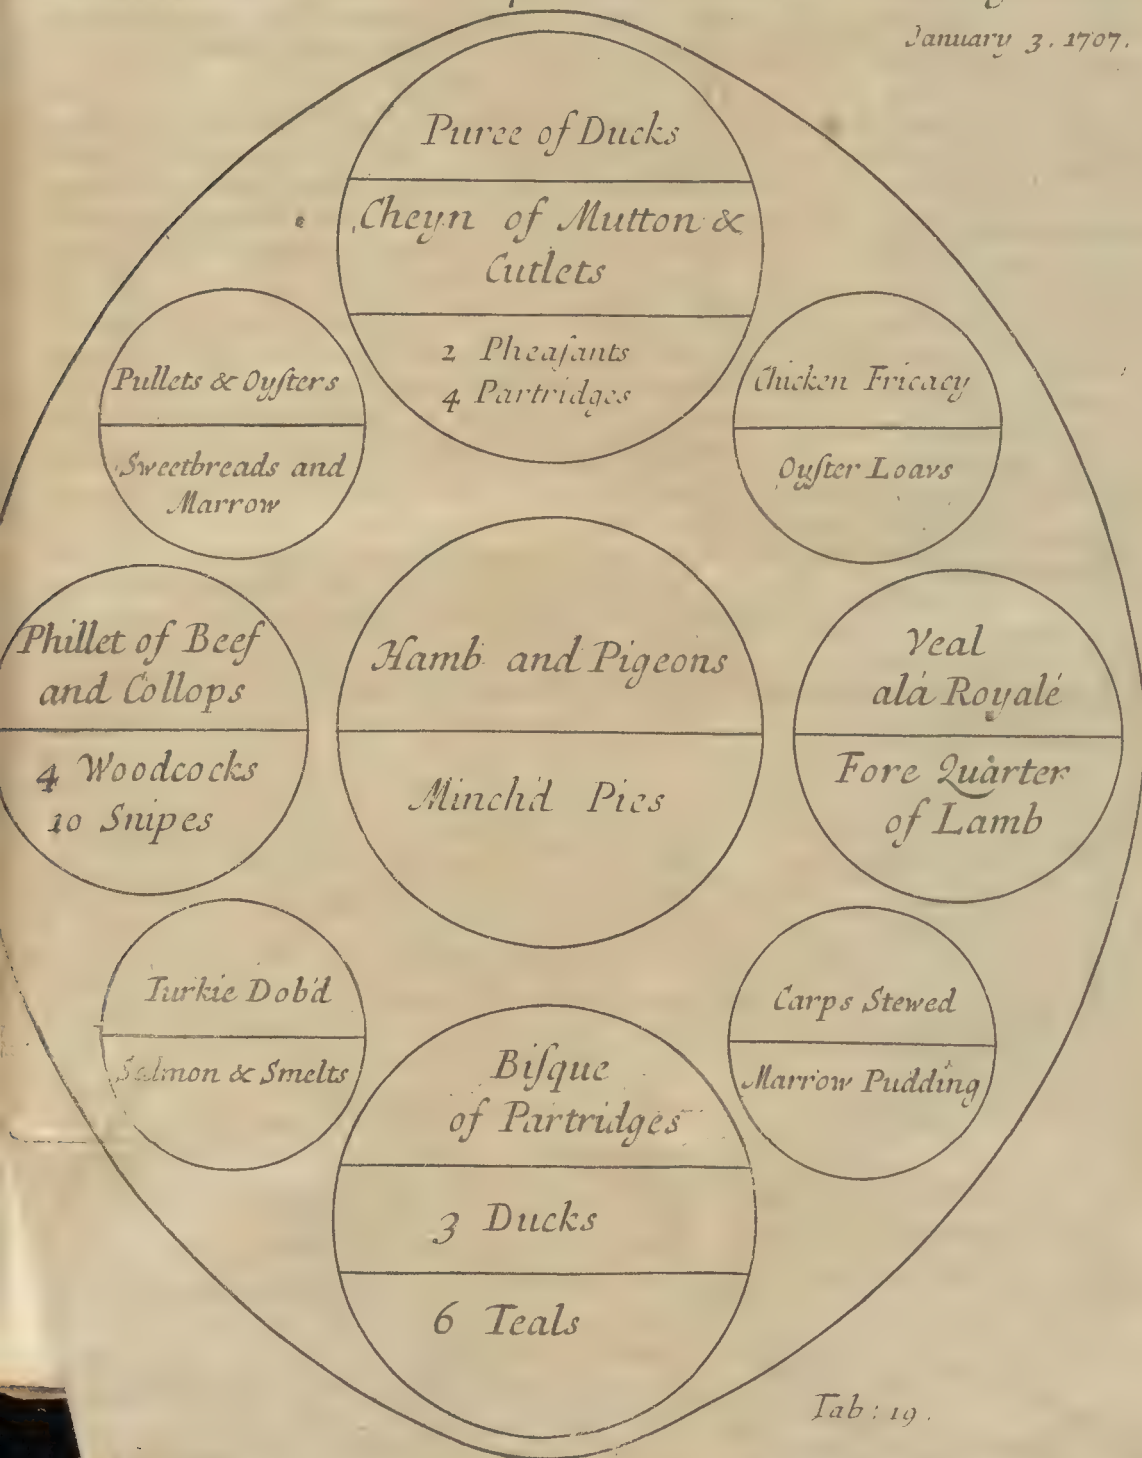 January 3. 1707.
Puree of Ducks
Cheyn of Mutton &
Cutlets
2 Pheaſants
4 Partridges
Pullets & Oyſters
Sweetbreads and
Marrow
Chicken Fricacy
Oyſter Loavs
Phillet of Beef
and Collops
4 Woodcocks
10 Snipes
Hamb and Pigeons
Minch'd Pies
Veal
alá Royalé
Fore Quarter
of Lamb
Turkie Dob'd
Salmon & Smelts
Carps Stewed
Marrow Pudding
Biſque
of Partridges
3 Ducks
6 Teals
Tab: 19.